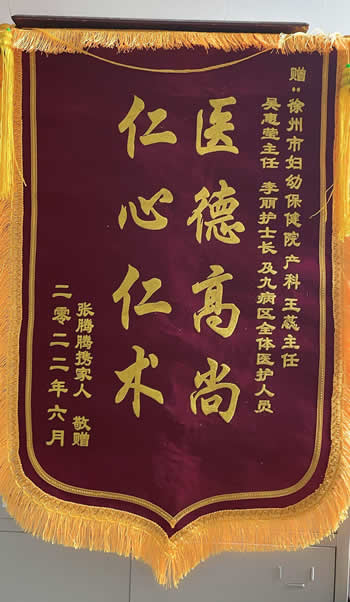 赠:徐州市妇幼保健院 产科 王葳主任
吴惠莹主任 李丽护士长及九病区全体医护人员
医德高尚
仁心仁术
张腾腾携家人 敬赠
二零二二年六月